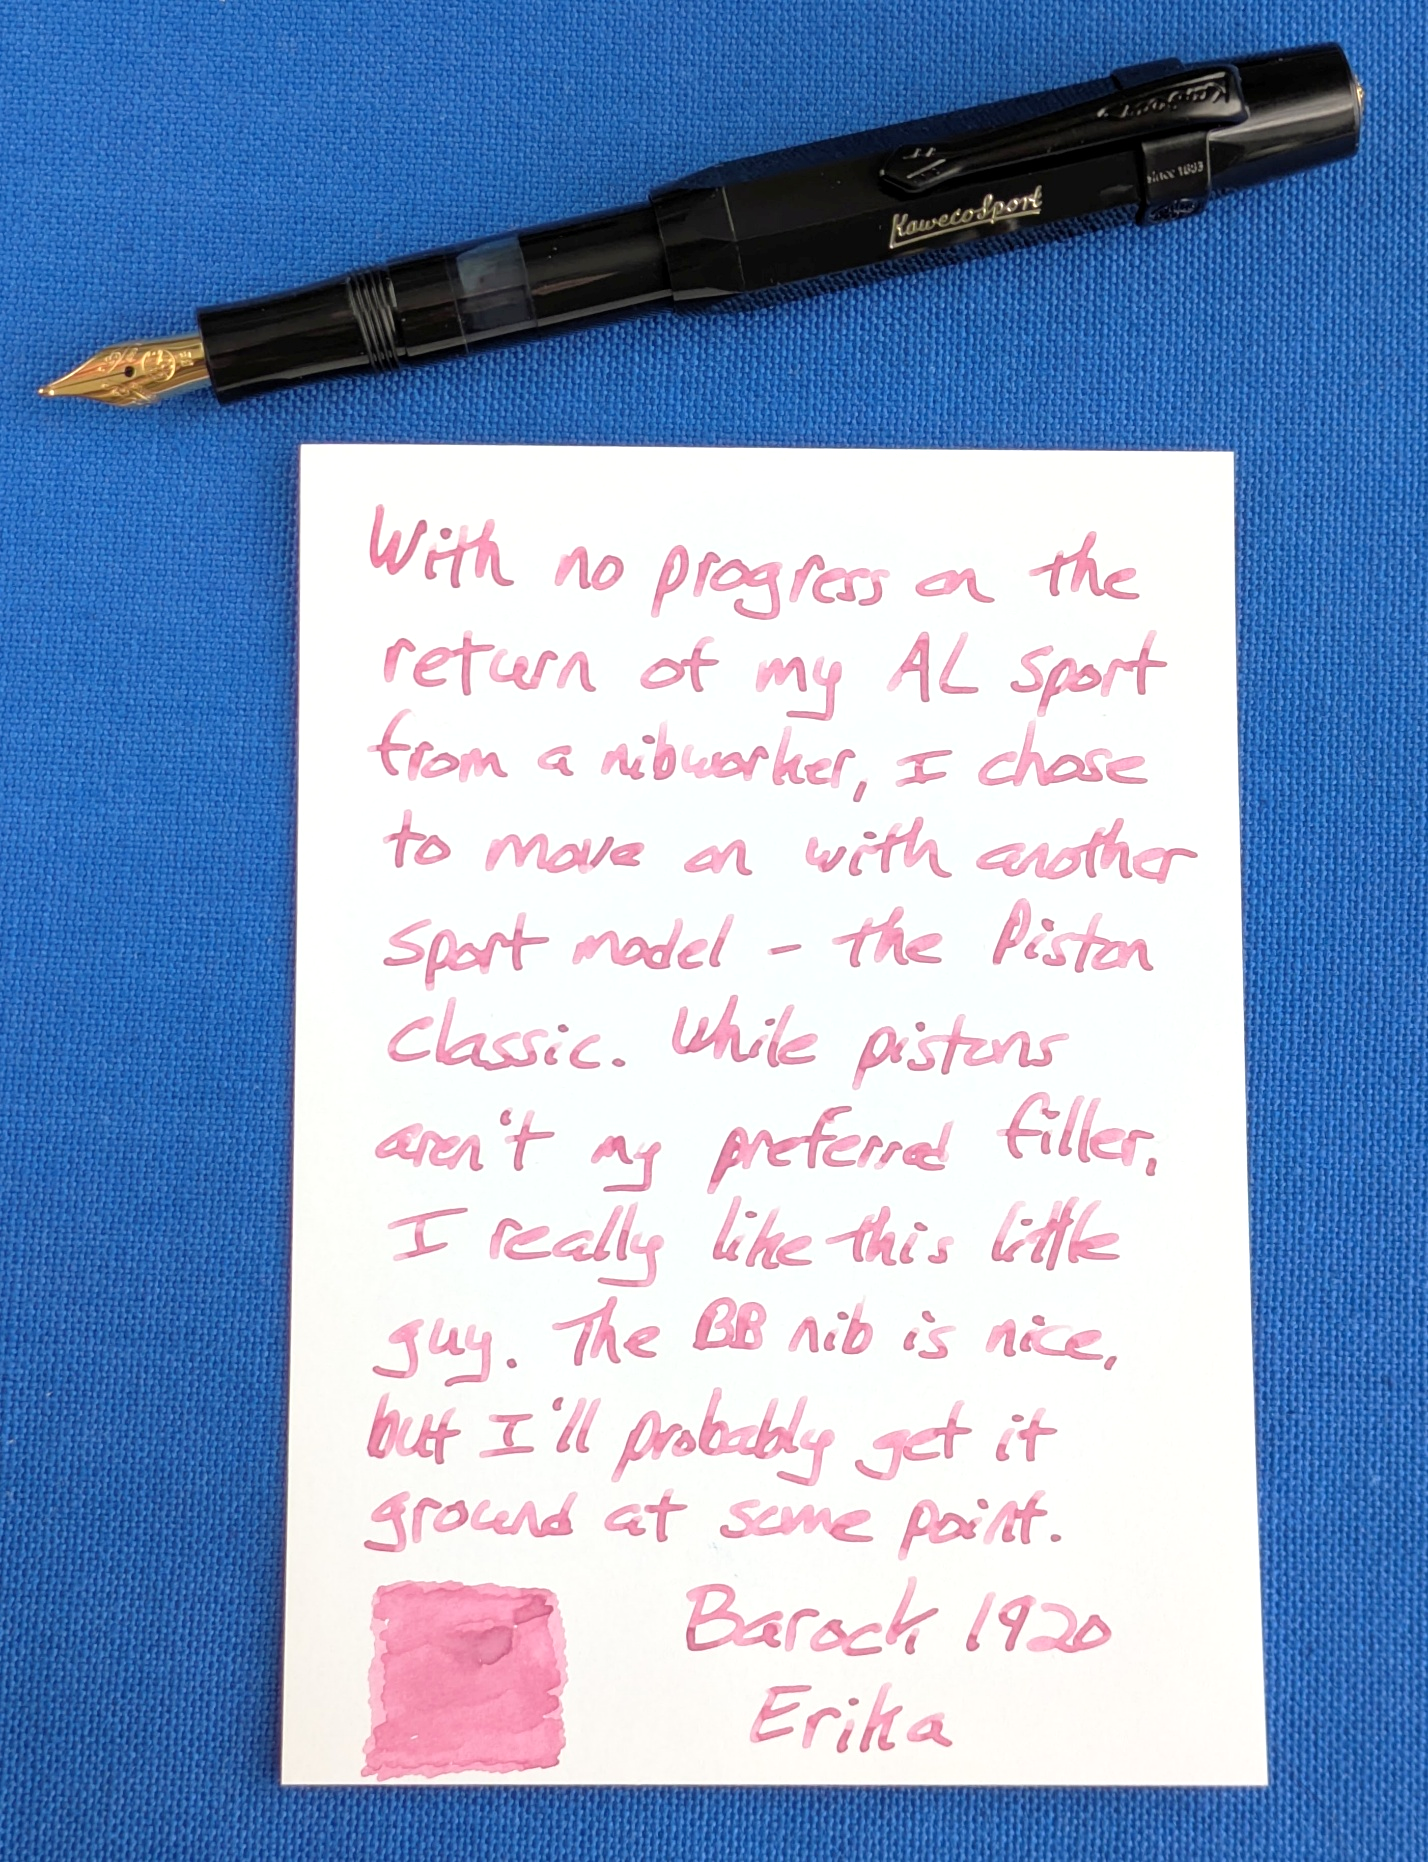 Kaweco
since 1883
KawecoSport
With no progress on the
return of my AL Sport
from a nibworker, I chose
to move on with another
Sport model - the Piston
Classic. While pistons
aren't my preferred filler,
I really like this little
guy. The BB nib is nice,
but I'll probably get it
ground at some point.
Barock 1920
Erika